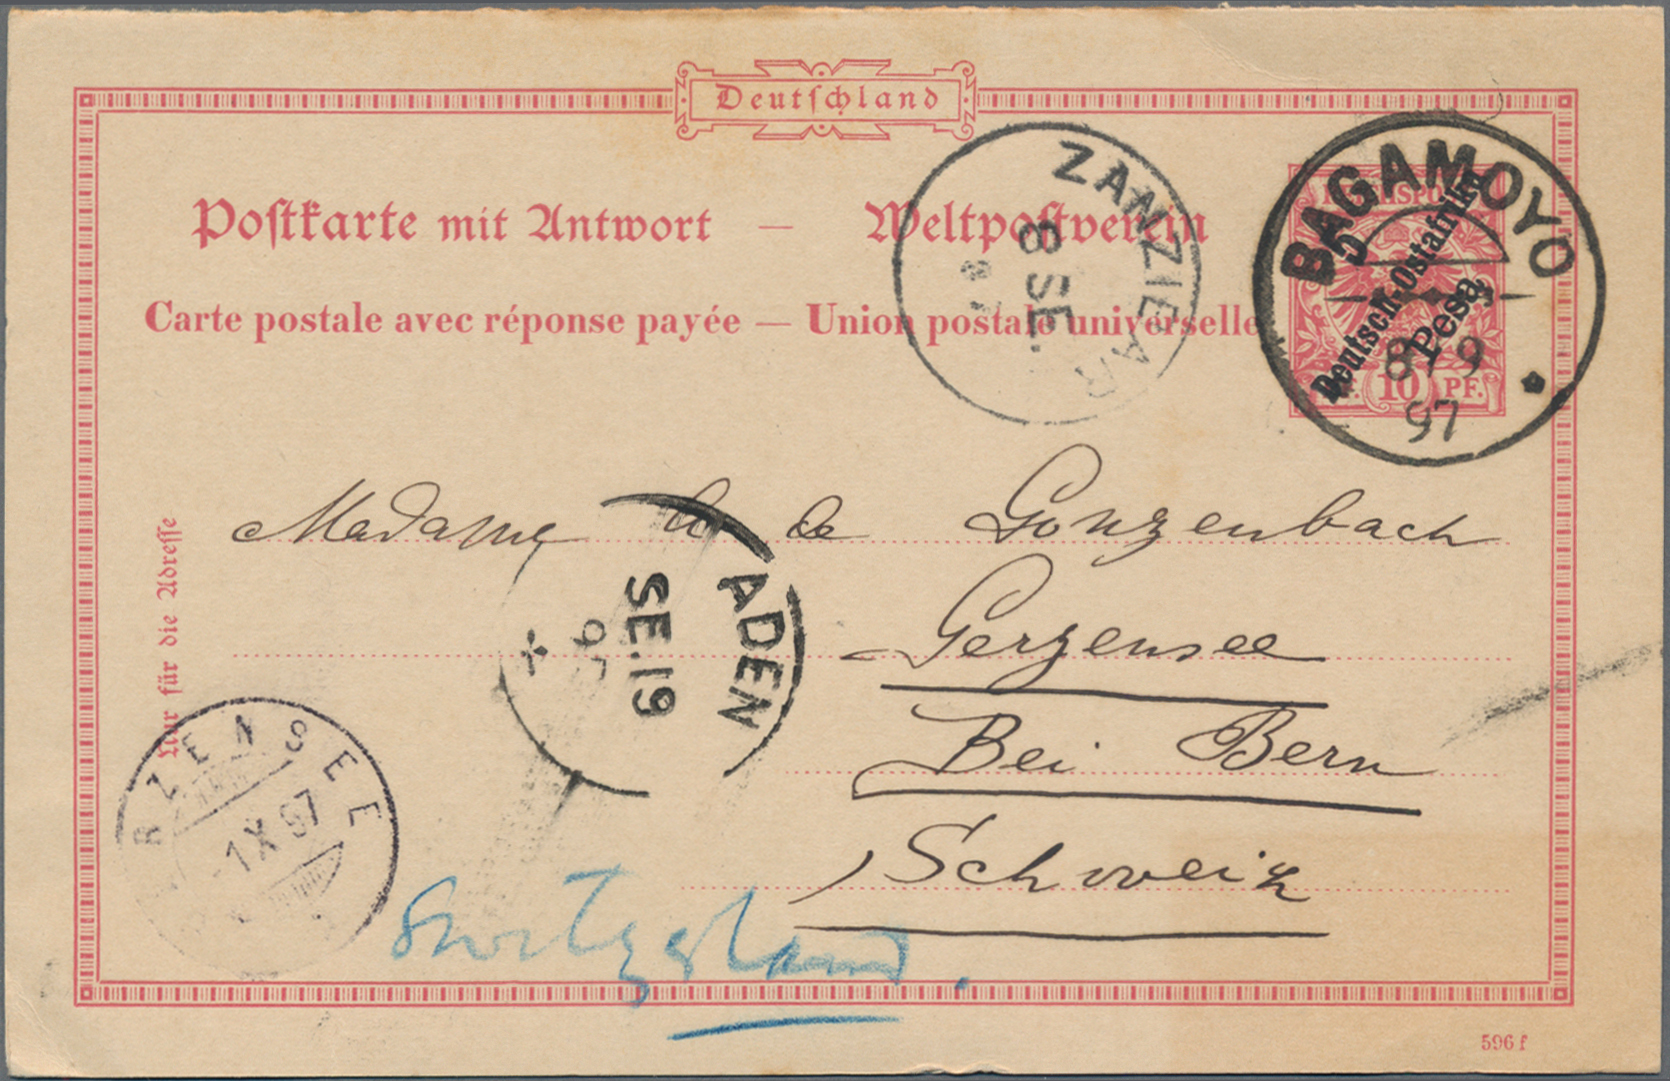 Deutschland
Postkarte mit Antwort — Weltpostverein
Carte postale avec réponse payée — Union postale universelle
REICHSPOST
10 PF.
5 Pesa
Deutsch-Ostafrika
BAGAMOYO
8/9
97
ZANZIBAR
8 SE.
97
Madame de Gonzenbach
Gerzensee
Bei Bern
Schweiz
Nur für die Adresse
ADEN
SE.19
97
RZENSEE
-1.X.97
Switzerland.
596 f